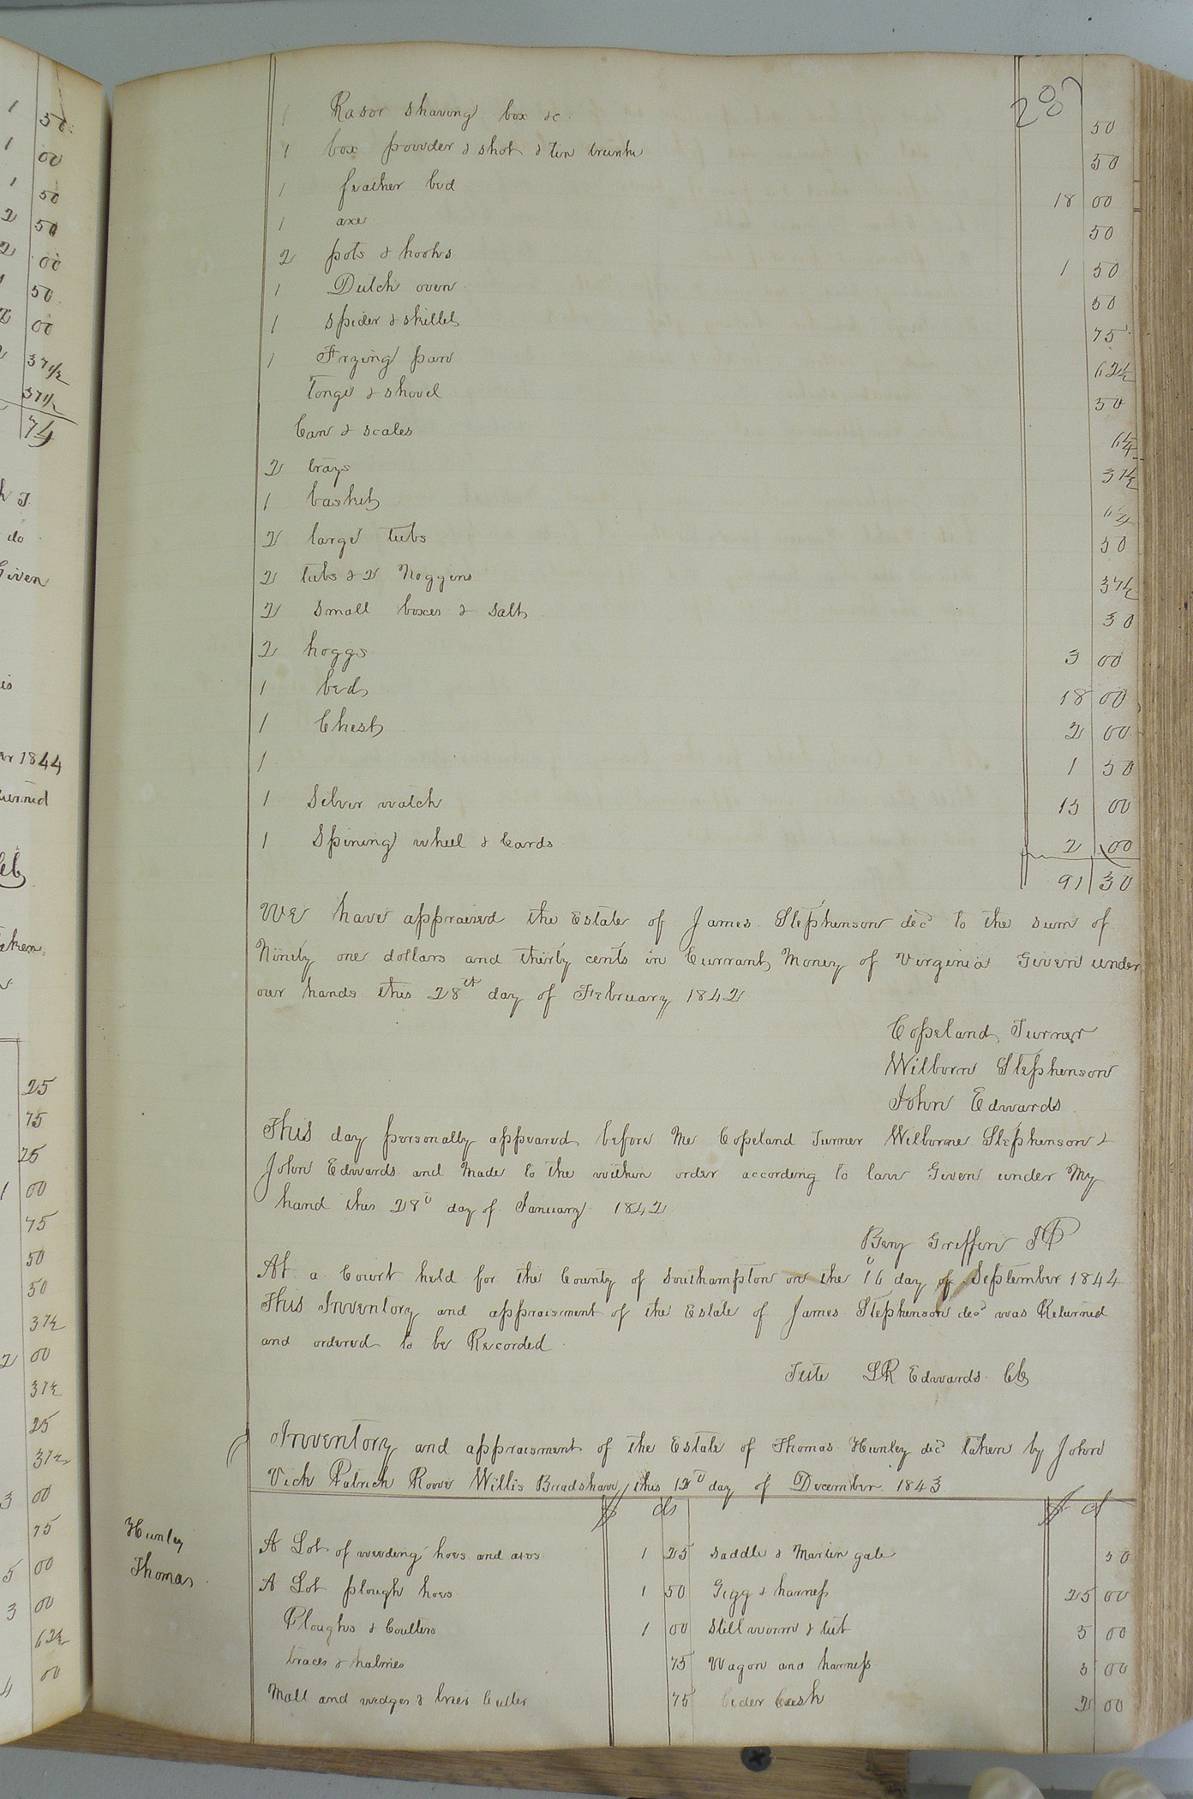 1 50
1 00
1 50
2 50
2 00
1 50
2 00
2 37½
37½
74
h J.
do
Given
is
er 1844
turned
Clk
taken
25
75
25
1 00
75
50
50
37½
2 00
37½
25
37½
3 00
75
5 00
3 00
62½
4 00
287
1 Rasor shaving box &c 50
1 box powder & shot & ten trunk 50
1 feather bed 18 00
1 axe 50
2 pots & hooks 1 50
1 Dutch oven 50
1 Spider & skillet 75
1 Frzing pan 62½
Tongs & shovel 50
Can & scales 6¼
2 trays 37½
1 basket 6¼
2 large tubs 50
2 tubs & 2 Noggins 37½
2 Small boxes & Salt 30
2 hoggs 3 00
1 bed 18 00
1 Chest 2 00
1 1 50
1 Silver watch 15 00
1 Spining wheel & Cards 2 00
91 30
We have appraised the Estate of James Stephenson decd to the sum of
Ninety one dollars and thirty cents in Currant Money of Virginia Given under
our hands this 28th day of February 1842
Copeland Turner
Wilborn Stephenson
John Edwards
This day personally appeared before Me Copeland Turner Wilborne Stephenson &
John Edwards and Made to the within order according to law Given under My
hand this 28th day of January 1842
Benj Griffin JP
At a Court held for the County of Southampton on the 16 day of September 1844
This Inventory and appraisment of the Estate of James Stephenson decd was Returned
and ordered to be Recorded
Teste LR Edwards Clk
Inventory and appraisment of the Estate of Thomas Hunley decd taken by John
Vick Patrick Roove Willis Bradshaw this 12th day of December 1843
Hunley
Thomas
$ cts $ ct
A Lot of weeding hoes and axes 1 25 Saddle & Martin gale 50
A Lot plough hoes 1 50 Gigg & harness 25 00
Ploughs & Coulters 1 00 Still worm & tub 5 00
traces & halmes 75 Wagon and harness 5 00
Mall and wedges & bries Cutter 75 Cider Cask 2 00